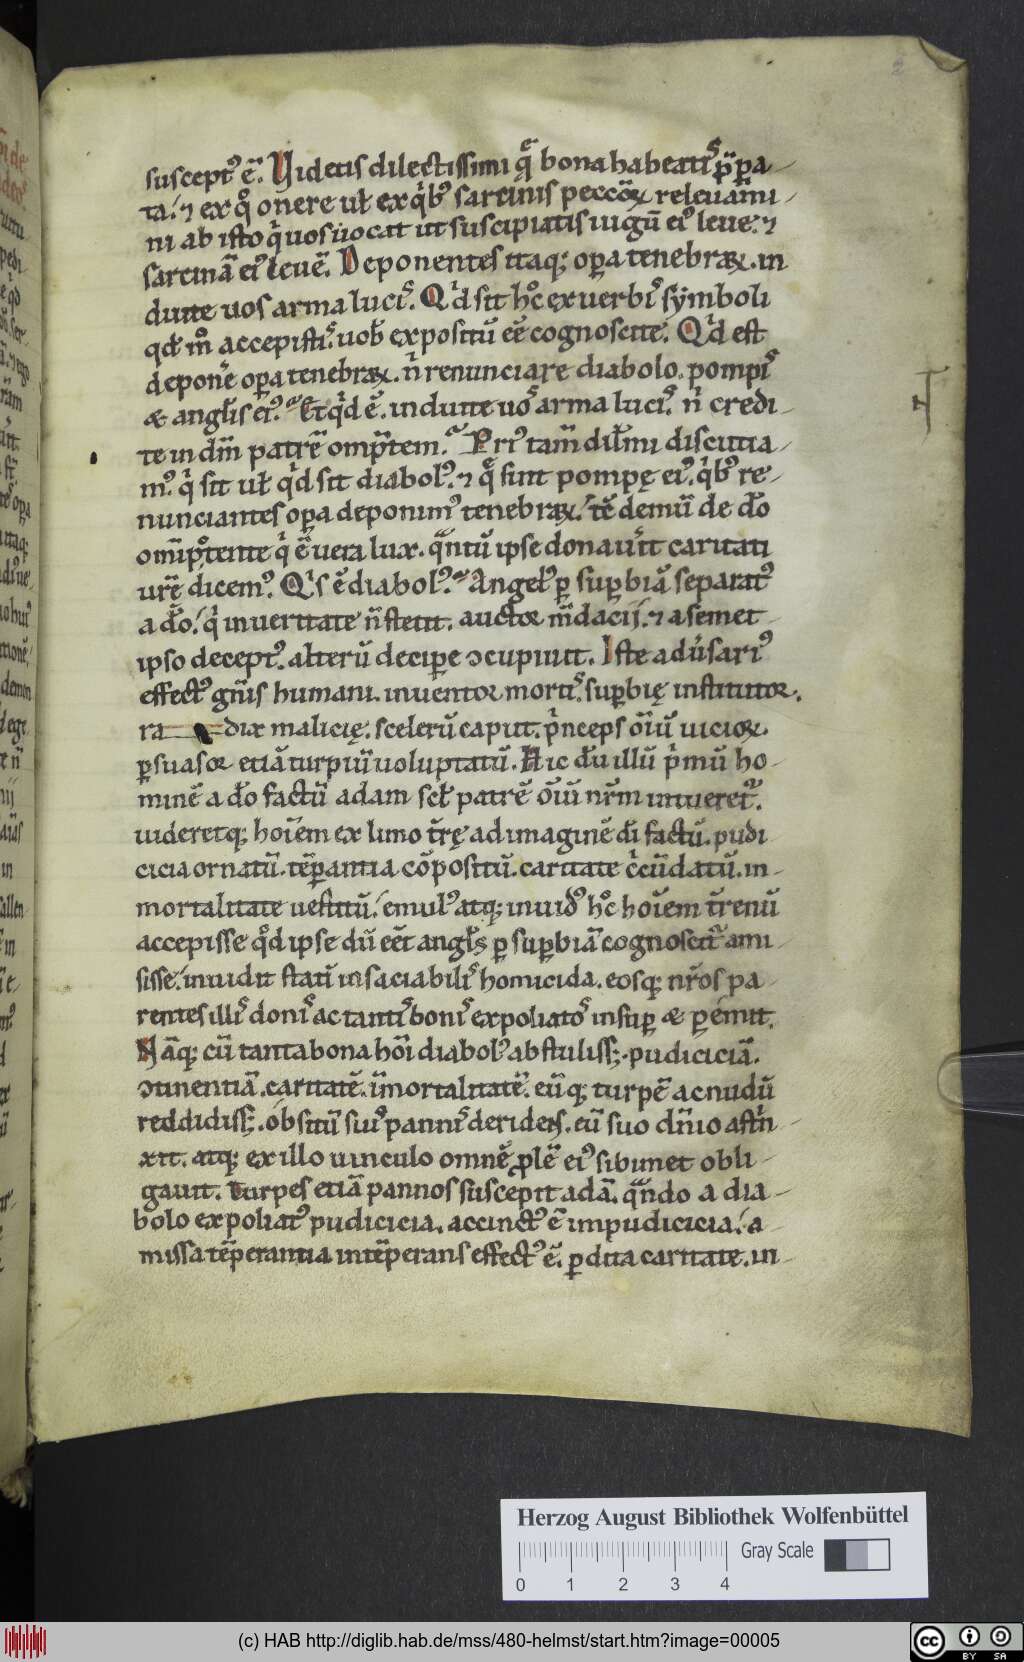 suscept᷒ ē. Videtis dilectissimi q̄ bona habeatis p̄pa-
ta. ⁊ ex qͦ onere uł ex qͥb᷒ sarcinis peccōꝝ releuam̄i-
ni ab isto qͥ uos uocat ut suscipiatis iugū ei᷒ leue. ⁊
sarcinā ei᷒ leuē. Deponentes itaq; oꝑa tenebraꝝ. in
duite uos arma lucis. Qͥd sit hͦc ex uerbis sẏmboli
qđ mͦ accepistis. uob̄ expositū eē cognoscite. Qͥd est
depon̄e oꝑa tenebraꝝ. n̄ renunciare diabolo. pompis
& angłis ei᷒. Et qͥd ē. induite uos arma lucis. n̄ credi-
te in dm̄ patrē omp̄tem. Pri᷒ tam̄ diłmi discutia-
m᷒. qͥ sit uł qͥd sit diabol᷒. ⁊ q̄ sint pompę ei᷒. qͥb᷒ re-
nunciantes oꝑa deponim᷒ tenebraꝝ. tē demū de đo
omīpͦtente qͥ ē uera lux. qᷓntū ipse donauīt caritati
urē dicem᷒. Qͥs ē diabol᷒. Angeł᷒ ꝑ suꝑbiā separat᷒
a đo. qͥ in ueritate n̄ stetit. auctor m̄dacij. ⁊ a semet-
ipso decept᷒. alterū deciꝑe ↄcupiuit. Iste adu͛sari᷒
effect᷒ gn̄is humani. inuentor mortis. suꝑbię institutor.
ra dix malicię. scelerū caput. pͥnceps oīū uicioꝝ.
ꝑsuasor etiā turpiū uoluptatū. Hic dū illū pͥmū ho-
minē a đo factū adam scł patrē oīū nr̄m intueret᷑.
uideretq; hoīem ex limo tr̄ę ad imaginē dī factū. pudi
cicia ornatū. tēꝑantia cōpositū. caritate cͥcūdatū. in-
mortalitate uestitū. emul᷒ atq; inuid᷒ hͦc hoīem tr̄enū
accepisse qͦd ipse dū eēt angłs ꝑ suꝑbiā cognoscit᷑ ami-
sisse. inuidit statū insaciabilis homicida. eosq; nr̄os pa-
rentes illis donis ac tantis bonis expoliatos insuꝑ & ꝑemit.
Nāq; cū tanta bona hoī diabol᷒ abstuliss;. pudiciciā.
ↄtinentiā. caritatē. īmortalitatē. eūq; turpē ac nudū
reddidiss;. obsitū sui᷒ pannis deridens. eū suo dn̄io astͥn-
xit. atq; ex illo uinculo omnē ꝓlē ei᷒ sibimet obli-
gauit. Turpes etiā pannos suscepit adā. qᷓndo a dia-
bolo expoliat᷒ pudicicia. accinct᷒ ē impudicicia. a-
missa tēperantia intēperans effect᷒ ē. ꝑdita caritate. in-
2
Herzog August Bibliothek Wolfenbüttel
Gray Scale
0 1 2 3 4
(c) HAB http://diglib.hab.de/mss/480-helmst/start.htm?image=00005
cc BY SA